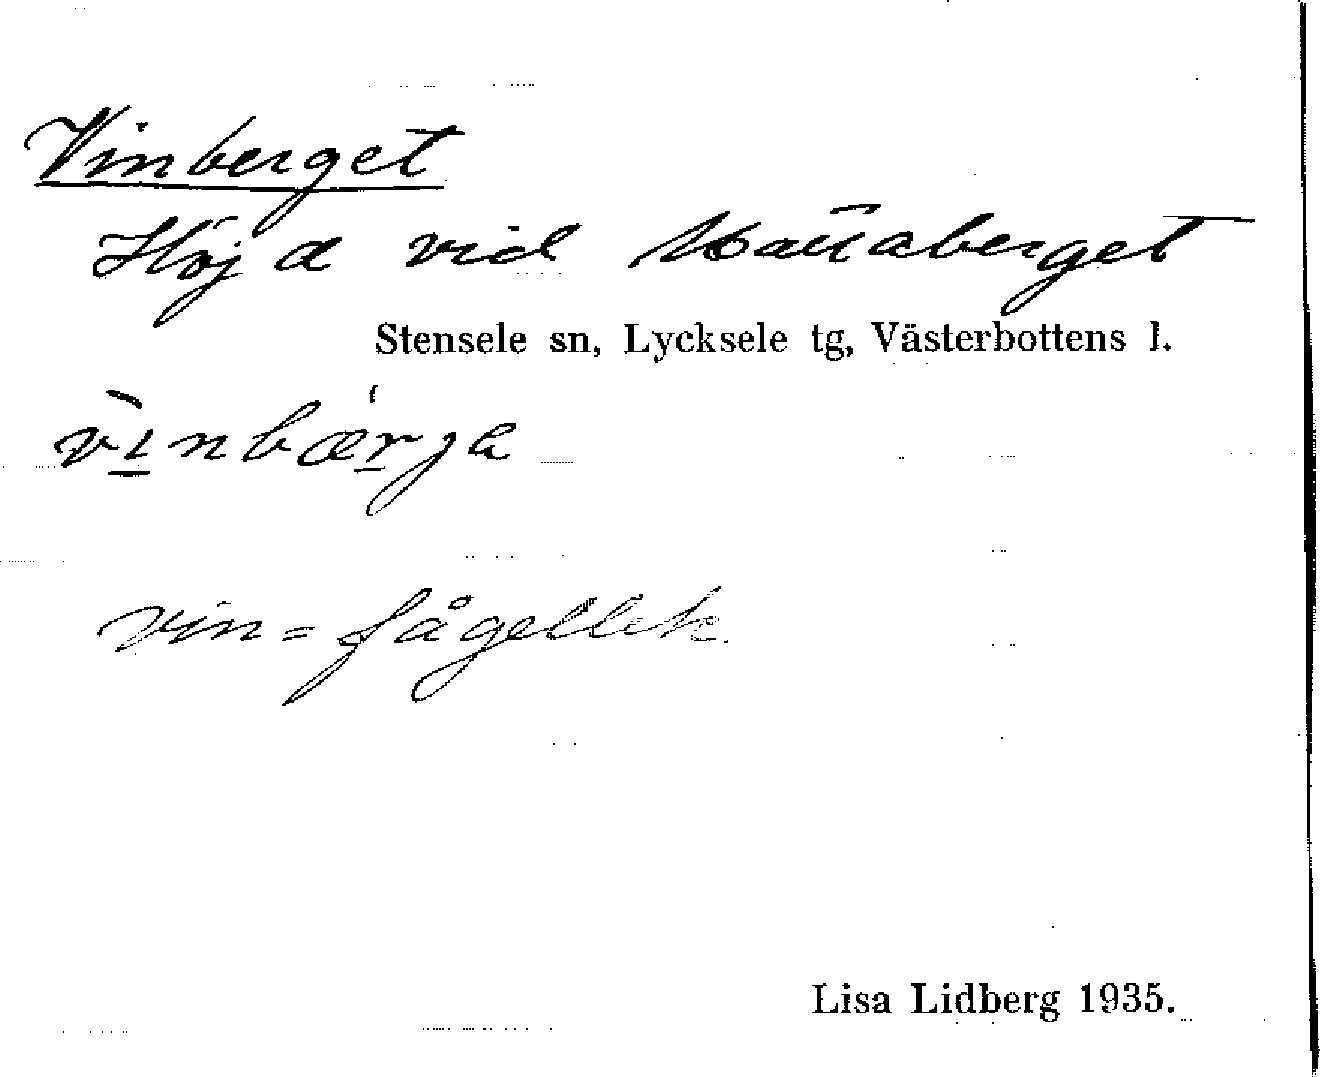 Vinberget
Höjd vid
Stensele sn, Lycksele tg, Västerbottens l.
vìnbær̲ja
vin = fågellek.
Lisa Lidberg 1935.